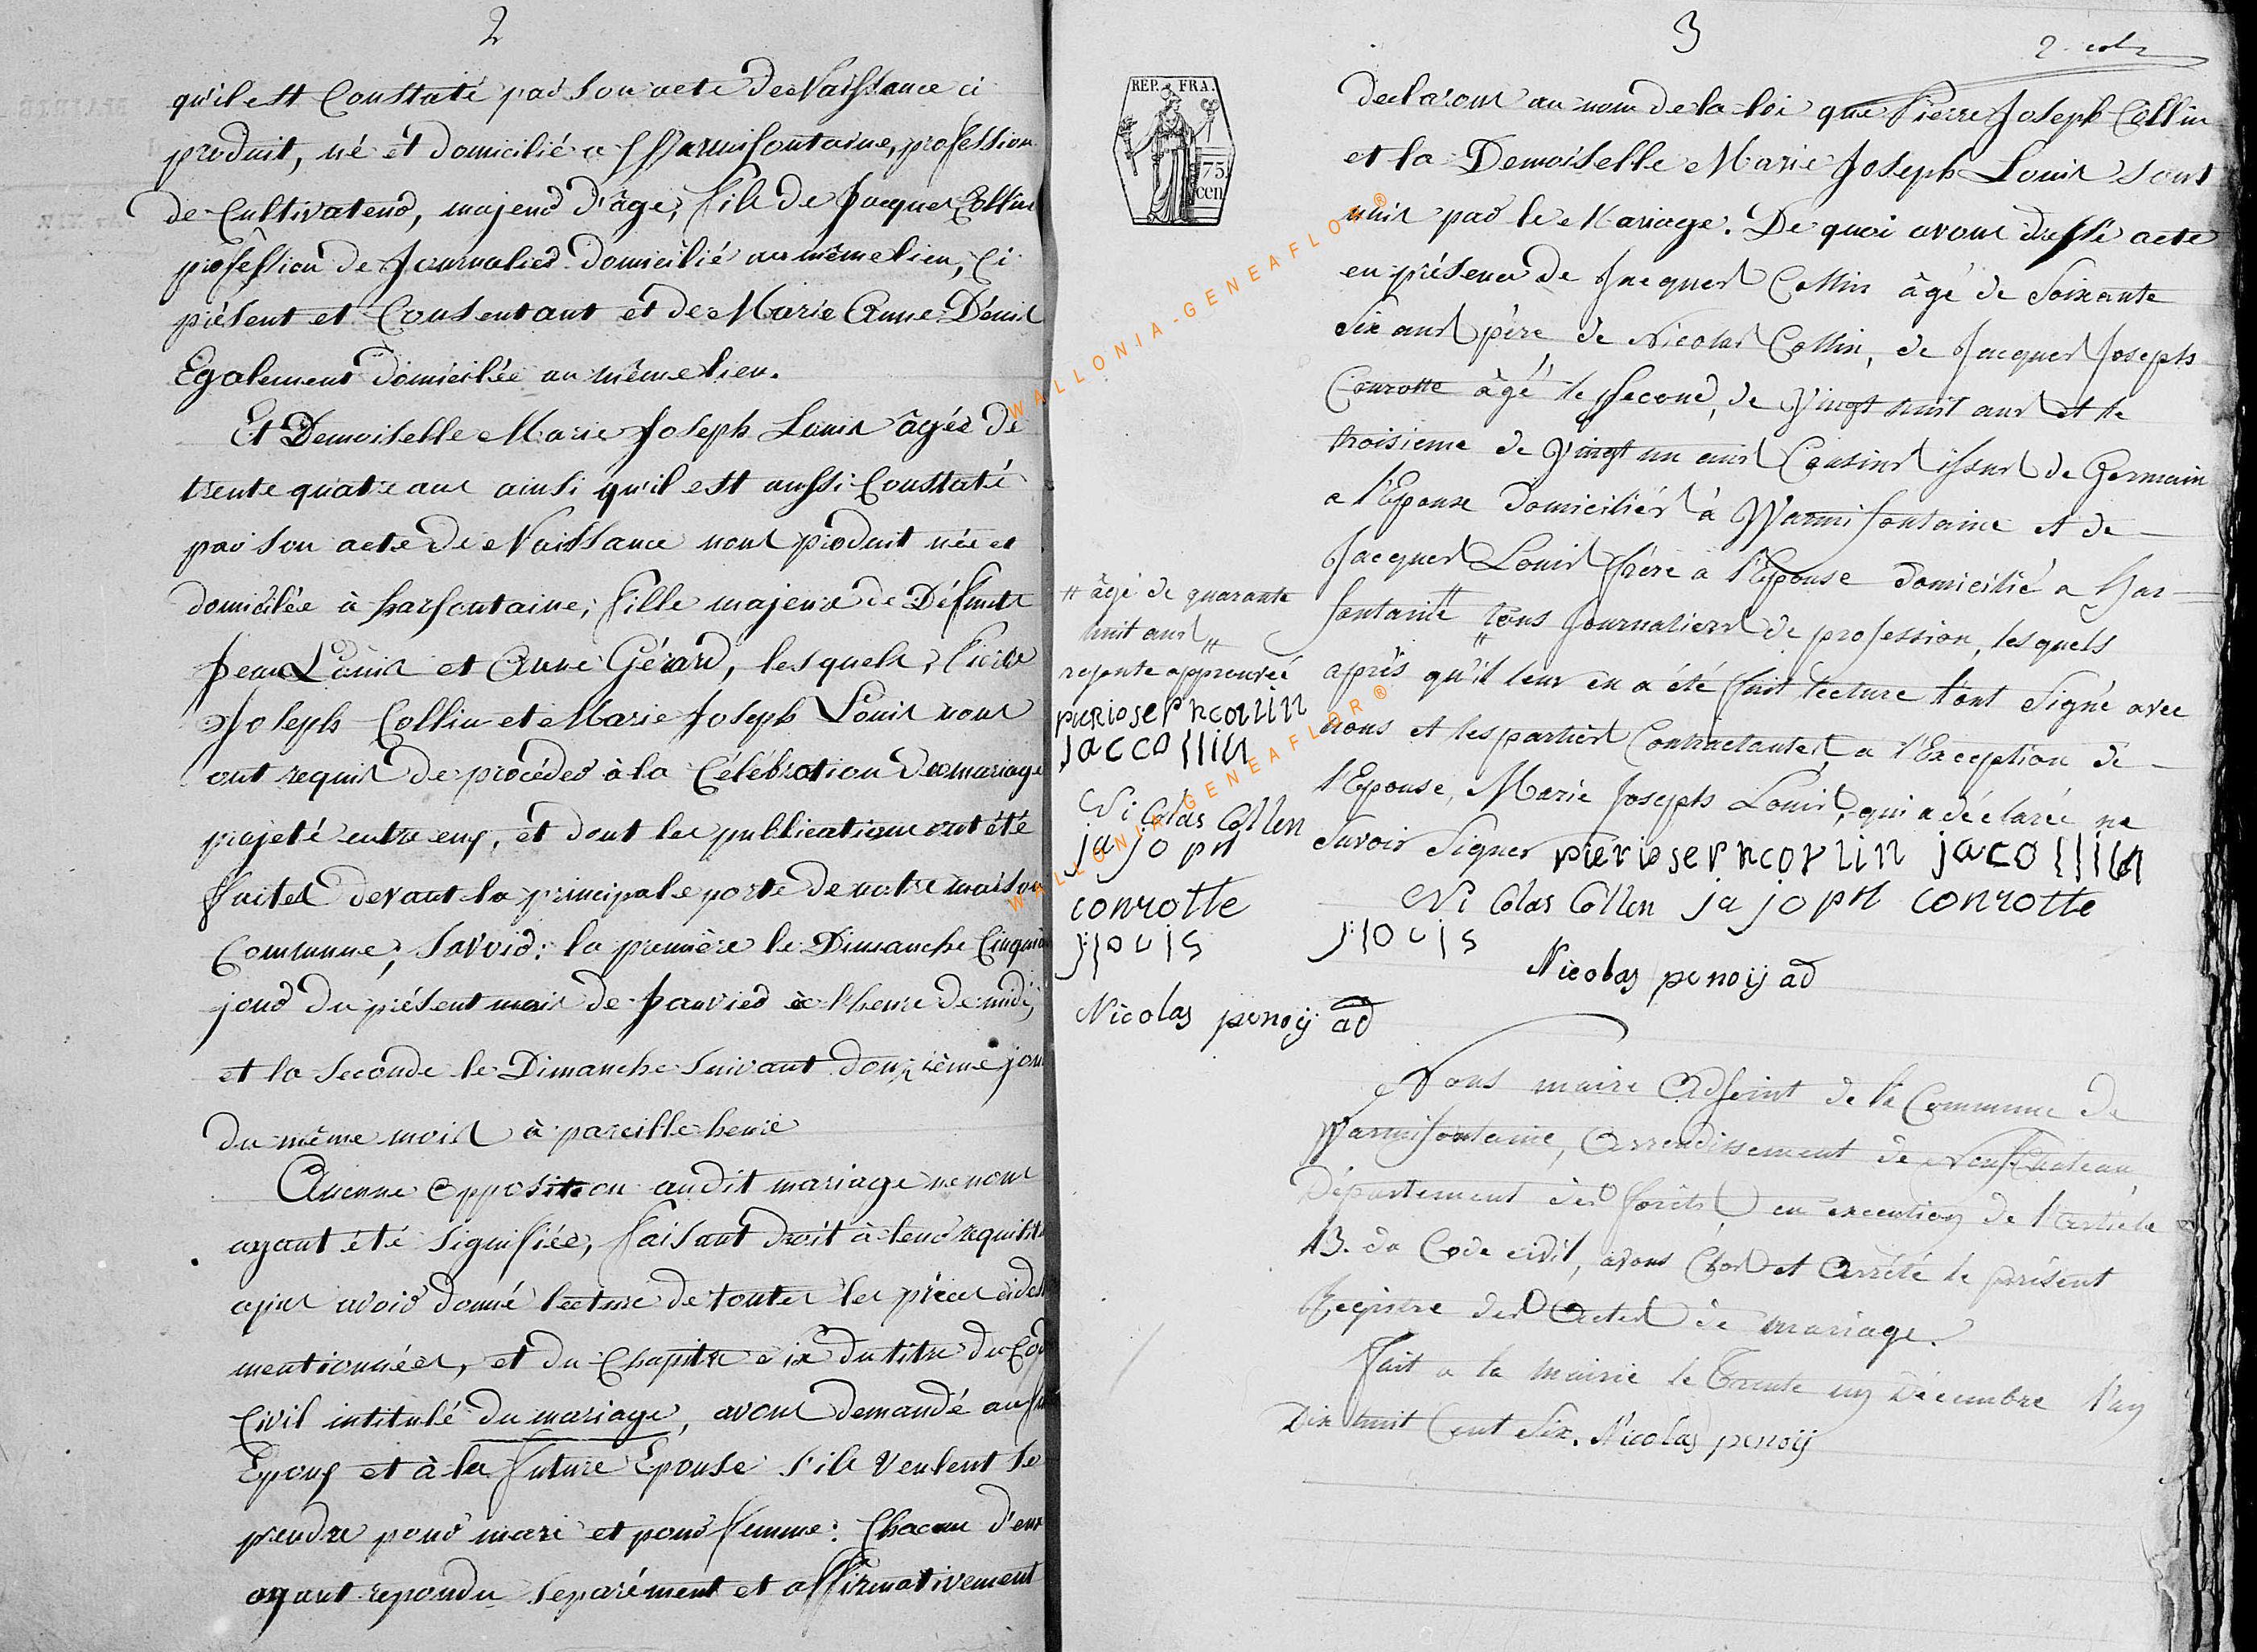 2
qu'il est Constaté par son acte de Naissance ci
produit, né et domicilié a Warmifontaine, profession
de Cultivateur, majeur d'âge, fils de Jacques Collin
profession de Journalier domicilié au même lieu, ci
présent et Consentant et de Marie Anne Denis
Egalement domiciliée au même lieu.
Et Demoiselle Marie Joseph Louis âgée de
trente quatre ans ainsi qu'il est aussi Constaté
par son acte de Naissance nous produit née et
domiciliée à harfontaine, fille majeure de Défunts
Jean Louis et Anne Gérard, lesquels, Pierre
Joseph Collin et Marie Joseph Louis nous
ont requis de procéder à la Célébration du mariage
projeté entre eux, et dont les publications ont été
faites devant la principale porte de notre maison
Commune, Savoir: la première le Dimanche Cinquiè
jour du présent mois de Janvier à l'heure de midi,
et la seconde le Dimanche suivant douzième jour
du même mois à pareille heure
Aucune opposition audit mariage ne nous
ayant été signifiée, faisant droit à leur requisit
après avoir donné lecture de toutes les pièces cides
mentionnées, et du Chapitre six du titre du Cod
Civil intitulé du mariage, avons demandé au fut
Epoux et à la future Epouse s'ils veulent se
prendre pour mari et pour femme: Chacun d'eux
ayant repondu séparément et affirmativement
3
REP. FRA.
75.
cen
declarons au nom de la loi que Pierre Joseph Collin
et la Demoiselle Marie Joseph Louis sont
unis par le Mariage. De quoi avons dressé acte
en présence de Jacques Collin âgé de Soixante
Six ans père de Nicolas Collin, de Jacques Joseph
Conrotte âgé, le second, de Vingt huit ans et le
troisieme de Vingt un ans Cousins issus de Germain
a l'Epouse domiciliés à Warmifontaine et de
Jacques Louis frère a l'Epouse domicilié a Har
fontaine # tous Journaliers de profession, lesquels
après qu'il leur en a été fait lecture l'ont Signé avec
nous et les parties Contractantes, a l'Exception de
l'Epouse, Marie Joseph Louis, qui a déclaré ne
Savoir Signer pieriosephcorlin jacollin
Nicolas Collen ja joph conrotte
j:louis
Nicolas penoij ad
# âgé de quarante
huit ans #
rejoute approuvée
pieriosephcorlin
jaccollin
Nicolas Collen
ja joph
conrotte
j:louis
Nicolas penoij ad
Nous maire Adjoint de la Commune de
Warmifontaine, Arrondissement de Neufchateau,
Département des forêts, en execution de l'article
43. du Code civil, avons Clos et Arrêté le présent
Registre des Actes de mariage.
Fait a la Mairie le Trente un Décembre l'an
Dix huit Cent Six. Nicolas penoij
WALLONIA-GENEAFLOR®
WALLONIA-GENEAFLOR®